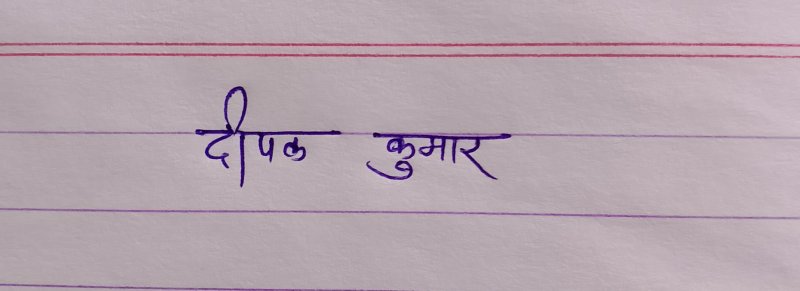 दीपक कुमार